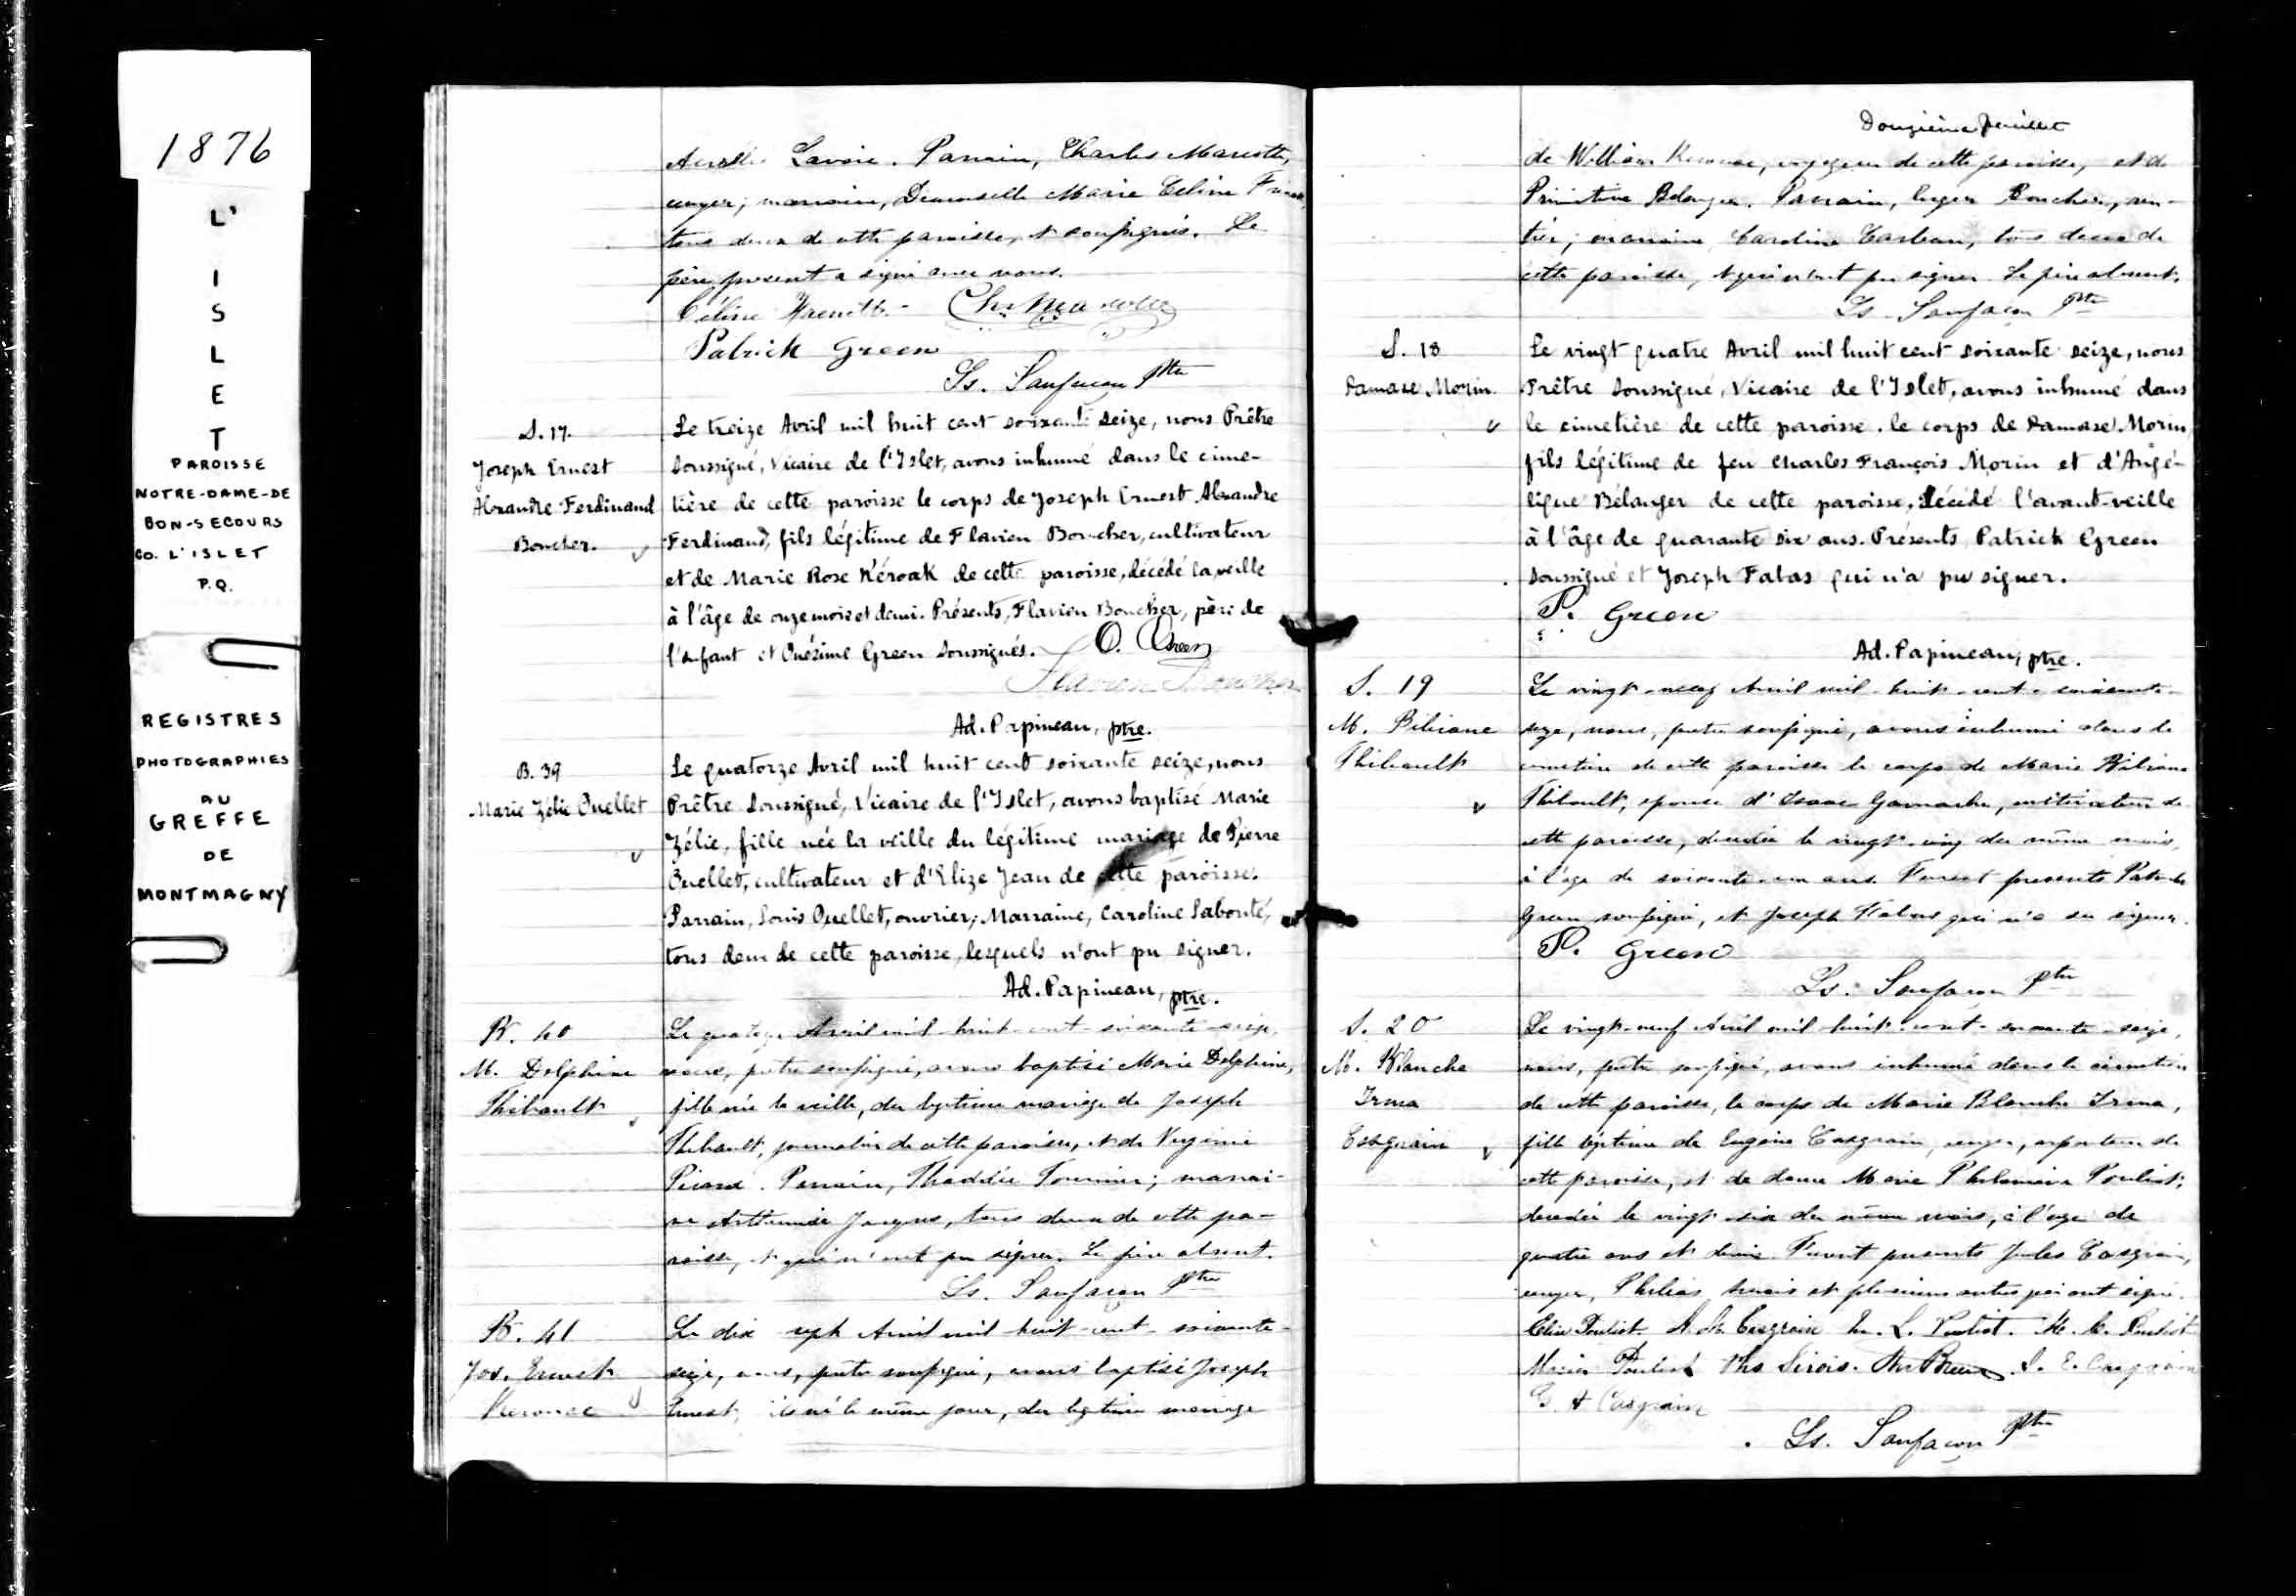 1876
L'
I
S
L
E
T
PAROISSE
NOTRE-DAME-DE
BON-SECOURS
CO. L'ISLET
P.Q.
REGISTRES
PHOTOGRAPHIES
AU
GREFFE
DE
MONTMAGNY
Lavoie. Parrain, Charles Marcotte,
marraine, Demoiselle Marie Céline
tous deux de cette paroisse, et soussignés. Le
père présent a signé avec nous.
Céline
Patrick Green
Ls. Sanfaçon Ptre
S. 17.
Joseph Ernest
Alexandre Ferdinand
Boucher.
Le treize Avril mil huit cent soixante seize, nous Prêtre
soussigné, Vicaire de l'Islet, avons inhumé dans le cime-
tière de cette paroisse le corps de Joseph Ernest Alexandre
Ferdinand, fils légitime de Flavien Boucher, cultivateur
et de Marie Rose Kéroak de cette paroisse, décédé la veille
à l'âge de onze mois et demi. Présents, Flavien Boucher, père de
l'enfant et Onésime Green soussignés. O. Green
Flavien Boucher
Ad. Papineau, ptre.
B. 39
Marie Zélie Ouellet
Le quatorze Avril mil huit cent soixante seize, nous
Prêtre soussigné, Vicaire de l'Islet, avons baptisé Marie
Zélie, fille née la veille du légitime mariage de Pierre
Ouellet, cultivateur et d'Elize Jean de cette paroisse.
Parrain, Louis Ouellet, ouvrier; Marraine, Caroline Labonté,
tous deux de cette paroisse, lesquels n'ont pu signer.
Ad. Papineau, ptre.
B. 40
M. Delphine
Thibault
Le quatorze Avril mil-huit-cent-soixante-seize,
nous, prêtre soussigné, avons baptisé Marie Delphine,
fille née la veille, du légitime mariage de Joseph
Thibault, journalier de cette paroisse, et de
Picard. Parrain, Thaddée Fournier; marrai-
ne tous deux de cette pa-
roisse, et qui n'ont pu signer. Le père absent.
Ls. Sanfaçon Ptre
B. 41
Jos. Ernest
Kerouac
Le dix sept Avril mil-huit-cent-soixante-
seize, nous, prêtre soussigné, avons baptisé Joseph
Ernest, né le même jour, du légitime mariage
Douzième feuillet
de William Kerouac, voyageur de cette paroisse, et de
Primitive Belanger. Parrain, Boucher, ren-
tier; marraine, Caroline tous deux de
cette paroisse, pu signer. Le père absent.
Ls. Sanfaçon Ptre
S. 18
Damase Morin
Le vingt quatre Avril mil huit cent soixante seize, nous
Prêtre soussigné, Vicaire de l'Islet, avons inhumé dans
le cimetière de cette paroisse. le corps de Damase Morin,
fils légitime de feu Charles François Morin et d'Angé-
lique Bélanger de cette paroisse, décédé l'avant-veille
à l'âge de quarante six ans. Présents, Patrick Green
soussigné et Joseph Fabas qui n'a pu signer.
P. Green
Ad. Papineau, ptre.
S. 19
M. Bibiane
Thibault
Le vingt-neuf Avril mil-huit-cent-soixante-
seize, nous, prêtre soussigné, avons inhumé dans le
cimetière de cette paroisse le corps de Marie Bibiane
Thibault, épouse d'Isaac Gamache, cultivateur de
cette paroisse, décédée le vingt-cinq du même mois,
à l'âge de soixante-un ans. Furent présents Patrick
Green soussigné, et Joseph qui n'a su signer.
P. Green
Ls. Sanfaçon Ptre
S. 20
M. Blanche
Irma
Casgrain
Le vingt-neuf Avril mil-huit-cent-soixante-seize,
nous, prêtre soussigné, avons inhumé dans le cimetière
de cette paroisse, le corps de Marie Blanche Irma,
fille légitime de Eugène Casgrain, arpenteur de
cette paroisse, et de dame Marie Philomène Pouliot,
décédée le vingt-six du même mois, à l'âge de
quatre ans et demi. Furent présents Jules Casgrain,
et plusieurs autres qui ont signé.
Pouliot. Casgrain Pouliot. Pouliot
Pouliot Ths Sirois. Casgrain
Casgrain
Ls. Sanfaçon Ptre